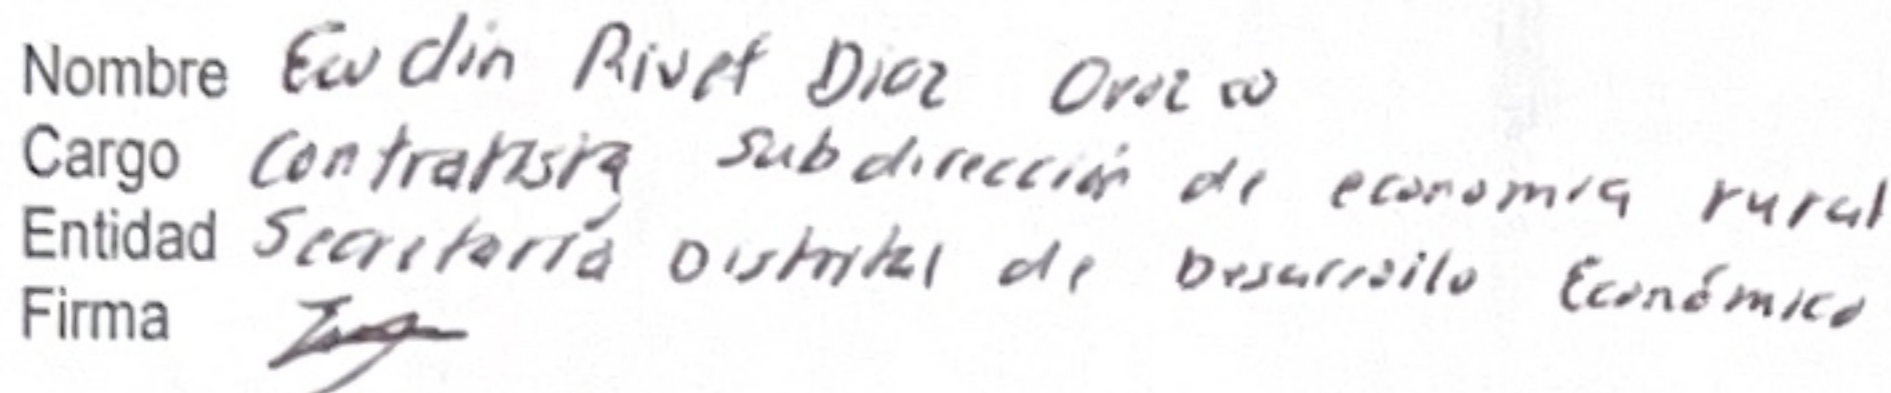 Nombre Eudin Rivet Diaz Orozco
Cargo Contratista Subdirección de economia rural
Entidad Secretaría Distrital de Desarrollo Económico
Firma